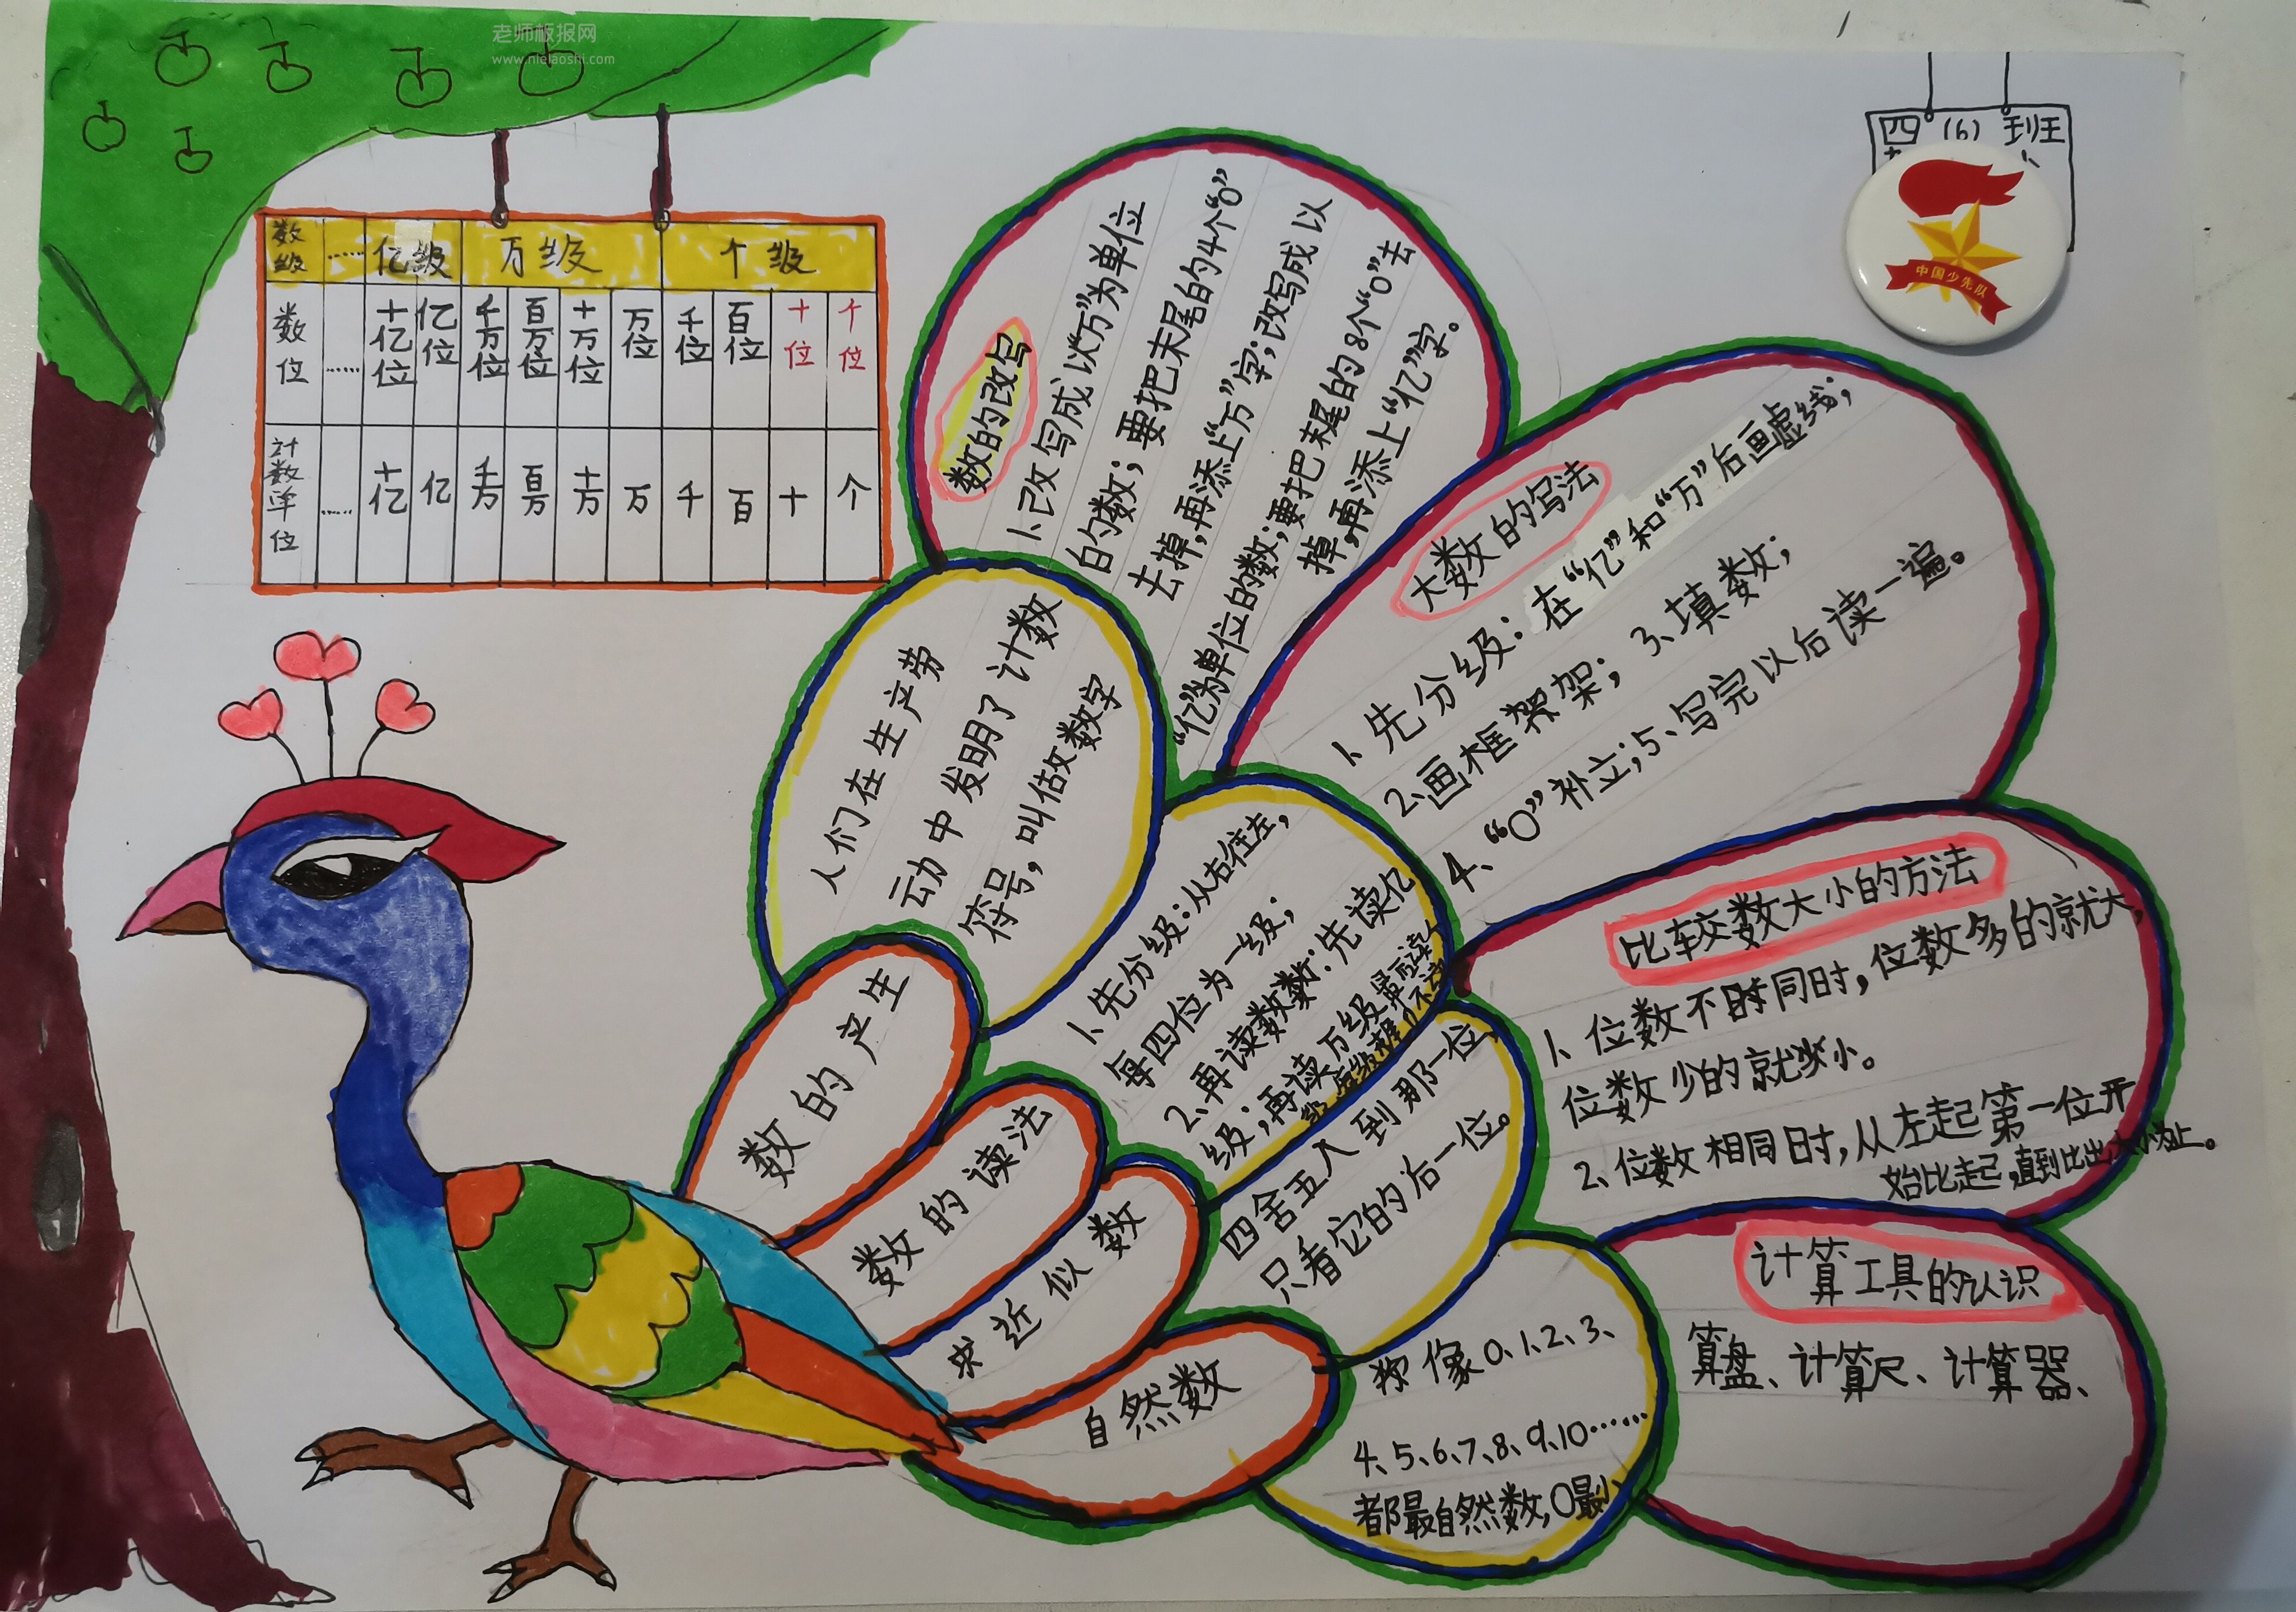 老师板报网
www.nielaoshi.com
四 (6) 班
中国少先队
数级 …… 亿级 万级 个级
数位 …… 十亿位 亿位 千万位 百万位 十万位 万位 千位 百位 十位 千位
计数单位 …… 十亿 亿 千万 百万 十万 万 千 百 十 个
数的改写
1、改写成以“万”为单位
的数；要把末尾的4个“0”
去掉，再添上“万”字；改写成以
“亿”为单位的数；要把末尾的8个“0”去
掉，再添上“亿”字。
大数的写法
1、先分级：在“亿”和“万”后画虚线；
2、画框架；3、填数；
4、“0”补立；5、写完以后读一遍。
比较数大小的方法
1、位数不同时，位数多的就大，
位数少的就小。
2、位数相同时，从左起第一位开
始比起，直到比出大小为止。
计算工具的认识
算盘、计算尺、计算器、
人们在生产劳
云力中发明了计数
符号，叫做数字
1、先分级：从右往左，
每四位为一级；
2、再读数：先读亿
级；再读万级
四舍五入到那一位，
只看它的后一位。
像0、1、2、3、
4、5、6、7、8、9、10……
都最自然数，0最小
数的产生
数的读法
求近似数
自然数